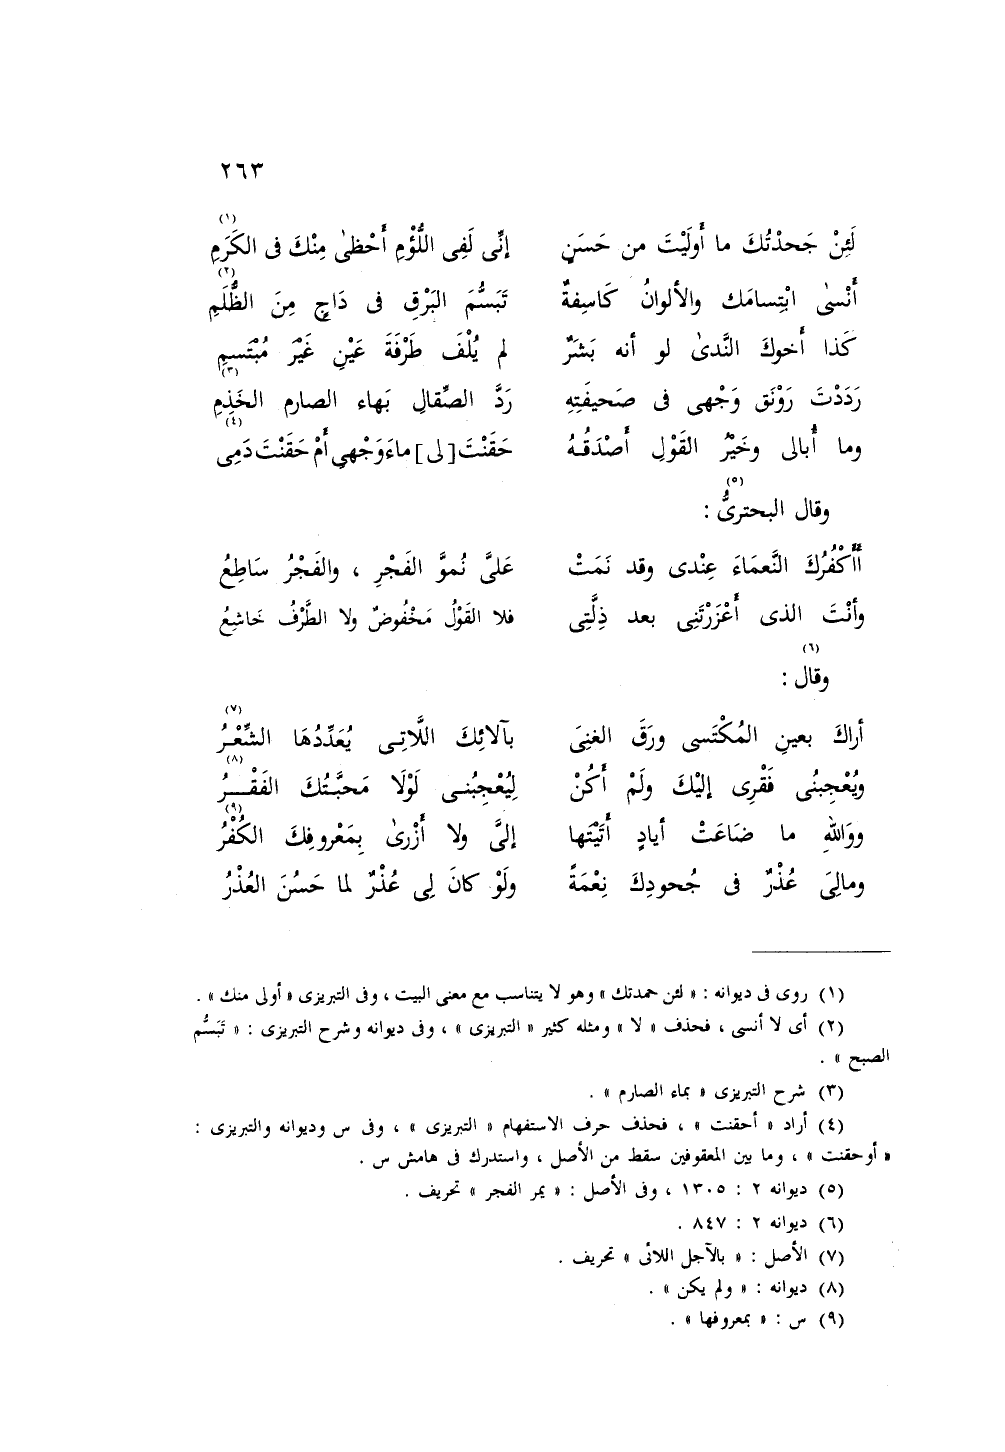 ٢٦٣
لَئِنْ جَحدْتُكَ ما أَولَيْتَ من حَسَنٍ إنِّى لَفِى اللُّؤْمِ أَحْظىٰ مِنْكَ فى الكَرَمِ (١)
أَنْسىٰ ابْتِسامَك والألوانُ كَاسِفةٌ تَبَسُّمَ البَرْقِ فى دَاجٍ مِنَ الظُّلَمِ (٢)
كَذا أَخوكَ النَّدىٰ لو أنه بَشَرٌ لم يُلْف طَرْفَةَ عَيْنٍ غَيْرَ مُبْتَسِمِ
رَدَدْتَ رَوْنَق وَجْهى فى صَحيفَتِهِ رَدَّ الصِّقالِ بَهاء الصارم الخَذِمِ (٣)
وما أُبالى وخَيْرُ القَوْلِ أَصْدَقُهُ حَقَنْتَ [ لى ] ماءَ وَجْهىِ أَمْ حَقَنْتَ دَمِى (٤)
وقال البحترىُّ (٥) :
أَأَكْفُرُكَ النَّعمَاءَ عِنْدى وقد نَمَتْ عَلىَّ نُموَّ الفَجْرِ ، والفَجْرُ سَاطِعُ
وأنْتَ الذى أَعْزَزْتَنِى بعد ذِلَّتِى فلا القَوْلُ مَخْفُوضٌ ولا الطَّرْفُ خَاشِعُ
وقال (٦) :
أراكَ بعينِ المُكْتَسى ورَقَ الغنِىَ بآلائِكَ اللَّاتِى يُعَدِّدُهَا الشِّعْرُ (٧)
ويُعْجِبُنى فَقْرِى إليْكَ ولَمْ أَكُنْ لِيُعْجِبُنى لَوْلَا مَحبَّتُكَ الفَقْرُ (٨)
ووَاللهِ ما ضَاعَتْ أيادٍ أَتَيْتَها إلىَّ ولا أَزْرىٰ بِمَعْروفِكَ الكُفْرُ (٩)
ومالِىَ عُذْرٌ فى جُحودِكَ نِعْمَةً ولَوْ كانَ لِى عُذْرٌ لما حَسُنَ العُذْرُ
(١) روى فى ديوانه : « لئن حمدتك » وهو لا يتناسب مع معنى البيت ، وفى التبريزى « أولى منك » .
(٢) أى لا أنسى ، فحذف « لا » ومثله كثير « التبريزى » ، وفى ديوانه وشرح التبريزى : « تَبَسُّم
الصبح » .
(٣) شرح التبريزى « بماء الصارم » .
(٤) أراد « أحقنت » ، فحذف حرف الاستفهام « التبريزى » ، وفى س وديوانه والتبريزى :
« أوحقنت » ، وما بين المعقوفين سقط من الأصل ، واستدرك فى هامش س .
(٥) ديوانه ٢ : ١٣٠٥ ، وفى الأصل : « يمر الفجر » تحريف .
(٦) ديوانه ٢ : ٨٤٧ .
(٧) الأصل : « بالآجل اللائى » تحريف .
(٨) ديوانه : « ولم يكن » .
(٩) س : « بمعروفها » .